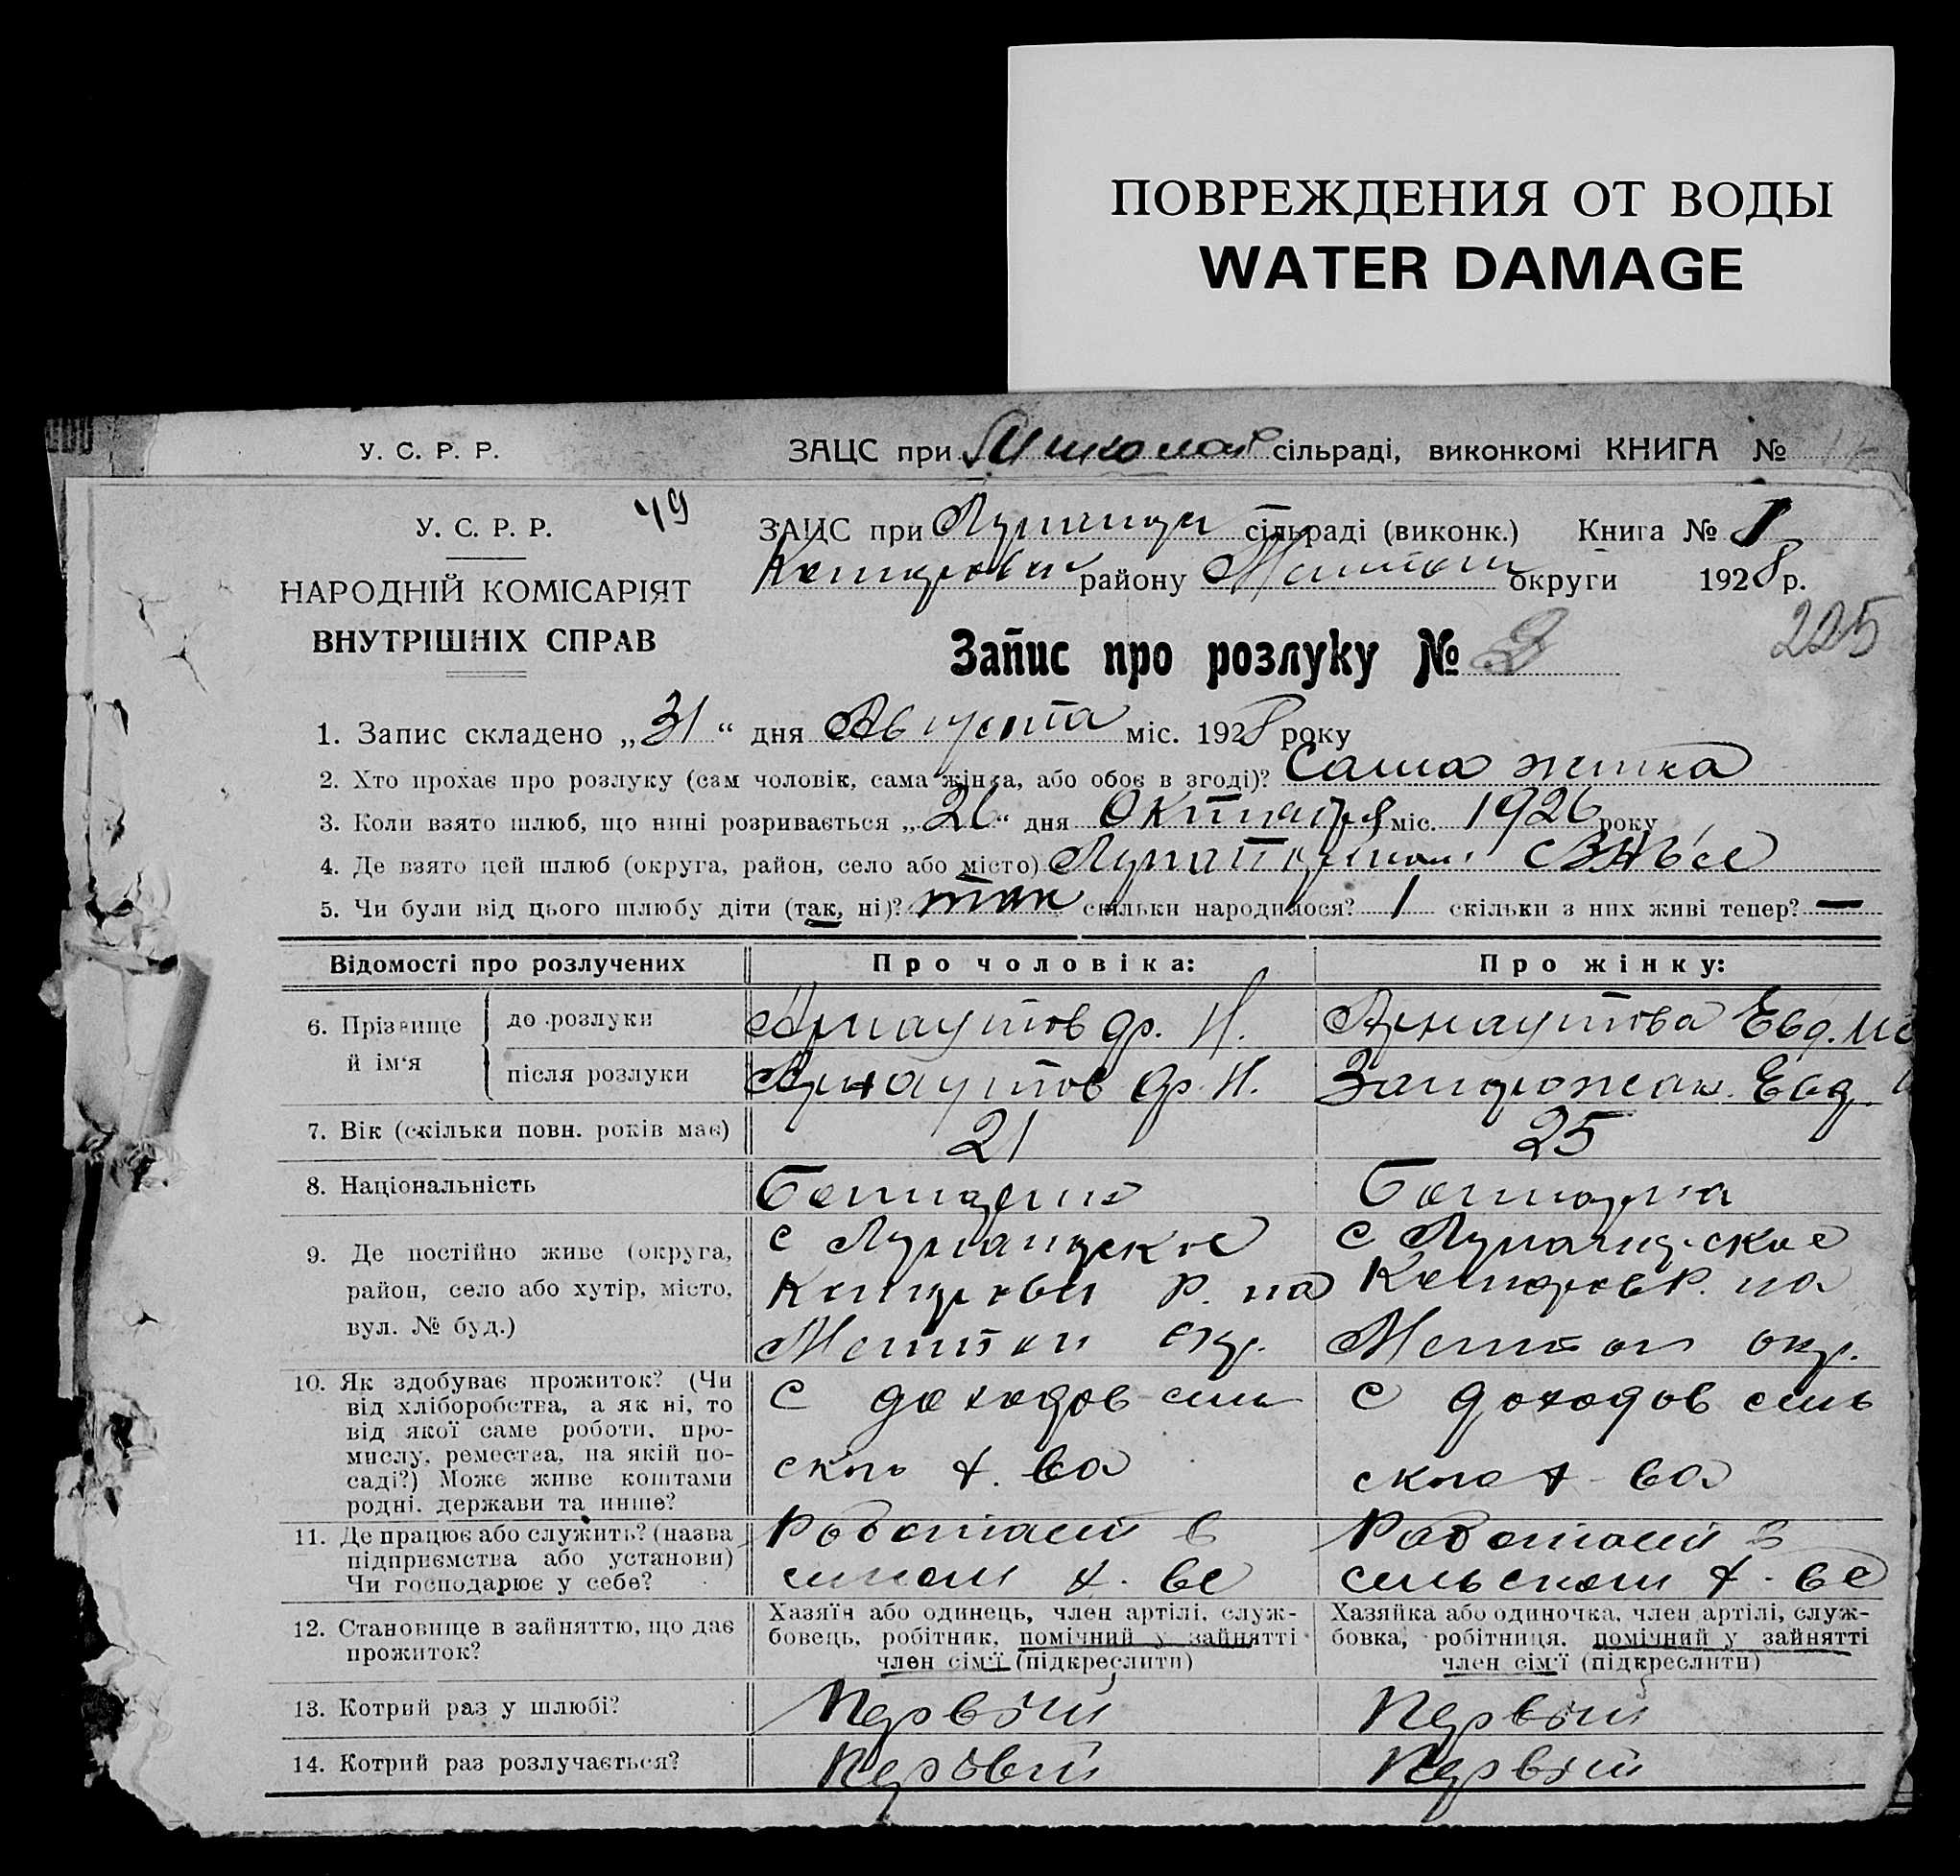 ПОВРЕЖДЕНИЯ ОТ ВОДЫ
WATER DAMAGE
У. С. Р. Р. ЗАЦС при сільраді, виконкомі КНИГА №
У. С. Р. Р. 49 ЗАЦС при сільраді (виконк.) Книга № 1
району округи 1928 р.
НАРОДНІЙ КОМІСАРІЯТ
ВНУТРІШНІХ СПРАВ
Запис про розлуку № 2 225
1. Запис складено „31“ дня Августа міс. 1928 року
2. Хто прохає про розлуку (сам чоловік, сама жінка, або обоє в згоді)? Сама жинка
3. Коли взято шлюб, що нині розривається „26“ дня Октиабря міс. 1926 року
4. Де взято цей шлюб (округа, район, село або місто)
5. Чи були від цього шлюбу діти (так, ні)? так скільки народилося? 1 скільки з них живі тепер? —
Відомості про розлучених Про чоловіка: Про жінку:
6. Прізвище й ім'я до розлуки Арнаутов Ф. И. Арнаутова Евд.
після розлуки Арнаутов Ф. И. Запорожан. Евд.
7. Вік (скільки повн. років має) 21 25
8. Національність
9. Де постійно живе (округа,
район, село або хутір, місто,
вул. № буд.)
с
Р. на
окр.
с
Р. на
окр.
10. Як здобуває прожиток? (Чи
від хліборобства, а як ні, то
від якої саме роботи, про-
мислу, ремества, на якій по-
саді?) Може живе коштами
родні, держави та инше?
С доходов сель
ского х. ва
С доходов сель
ского х-ва
11. Де працює або служить? (назва
підприємства або установи)
Чи господарює у себе?
Работает в
х. ве
Работает в
сельском х-ве
12. Становище в зайняттю, що дає
прожиток?
Хазяїн або одинець, член артілі, служ-
бовець, робітник, помічний у зайнятті
член сім'ї (підкреслити)
Хазяйка або одиночка, член артілі, служ-
бовка, робітниця, помічний у зайнятті
член сім'ї (підкреслити)
13. Котрий раз у шлюбі? Первый Первый
14. Котрий раз розлучається? Первый Первый